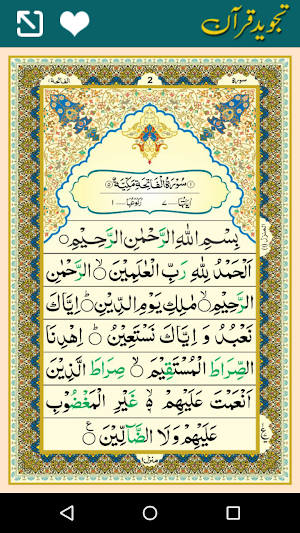 تجوید قرآن
سورۃ 2 الفاتحة
سُوْرَةُ الْفَاتِحَةِ مَكِّيَّةٌ
اٰیَاتُهَا ٧ رُكُوْعُهَا ١
بِسْمِ اللّٰهِ الرَّحْمٰنِ الرَّحِیْمِ
اَلْحَمْدُ لِلّٰهِ رَبِّ الْعٰلَمِیْنَ ۙ الرَّحْمٰنِ
الرَّحِیْمِ ۙ مٰلِكِ یَوْمِ الدِّیْنِ ؕ اِیَّاكَ
نَعْبُدُ وَ اِیَّاكَ نَسْتَعِیْنُ ؕ اِهْدِنَا
الصِّرَاطَ الْمُسْتَقِیْمَ ۙ صِرَاطَ الَّذِیْنَ
اَنْعَمْتَ عَلَیْهِمْ ۙ غَیْرِ الْمَغْضُوْبِ
عَلَیْهِمْ وَلَا الضَّآلِّیْنَ
منزل ١